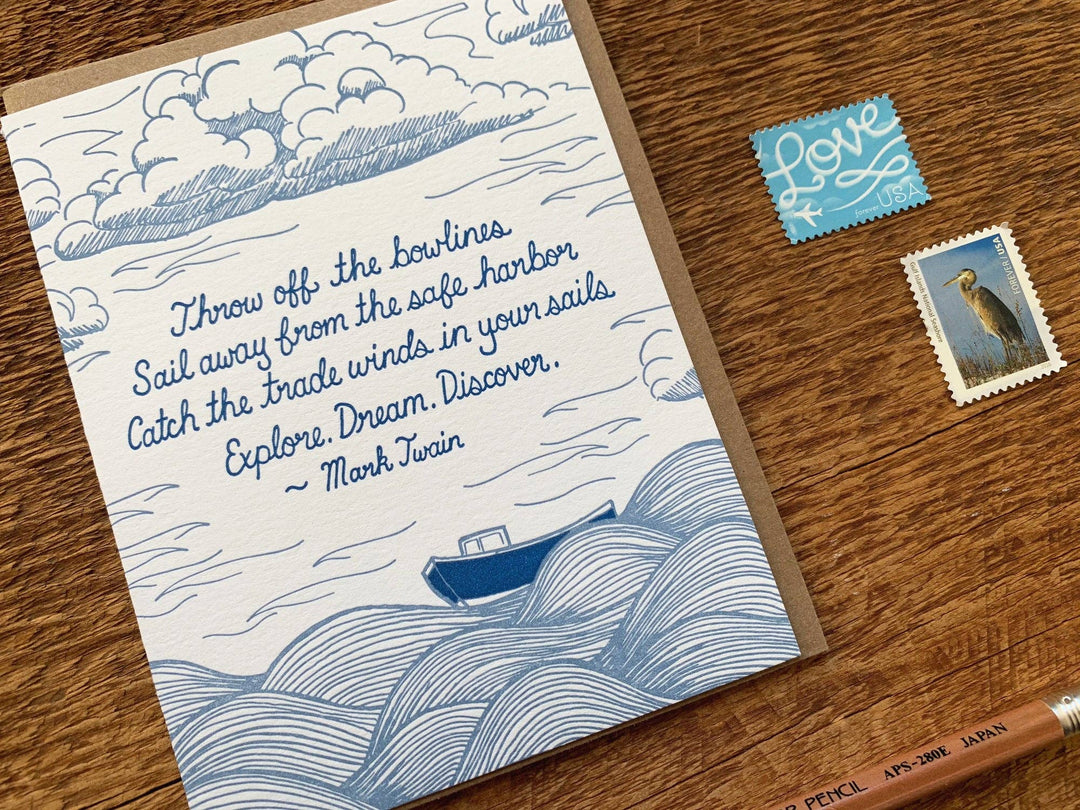 Throw off the bowlines
Sail away from the safe harbor
Catch the trade winds in your sails
Explore. Dream. Discover.
~ Mark Twain
Love
forever USA
Gulf Islands National Seashore
FOREVER USA
PENCIL APS-280E JAPAN